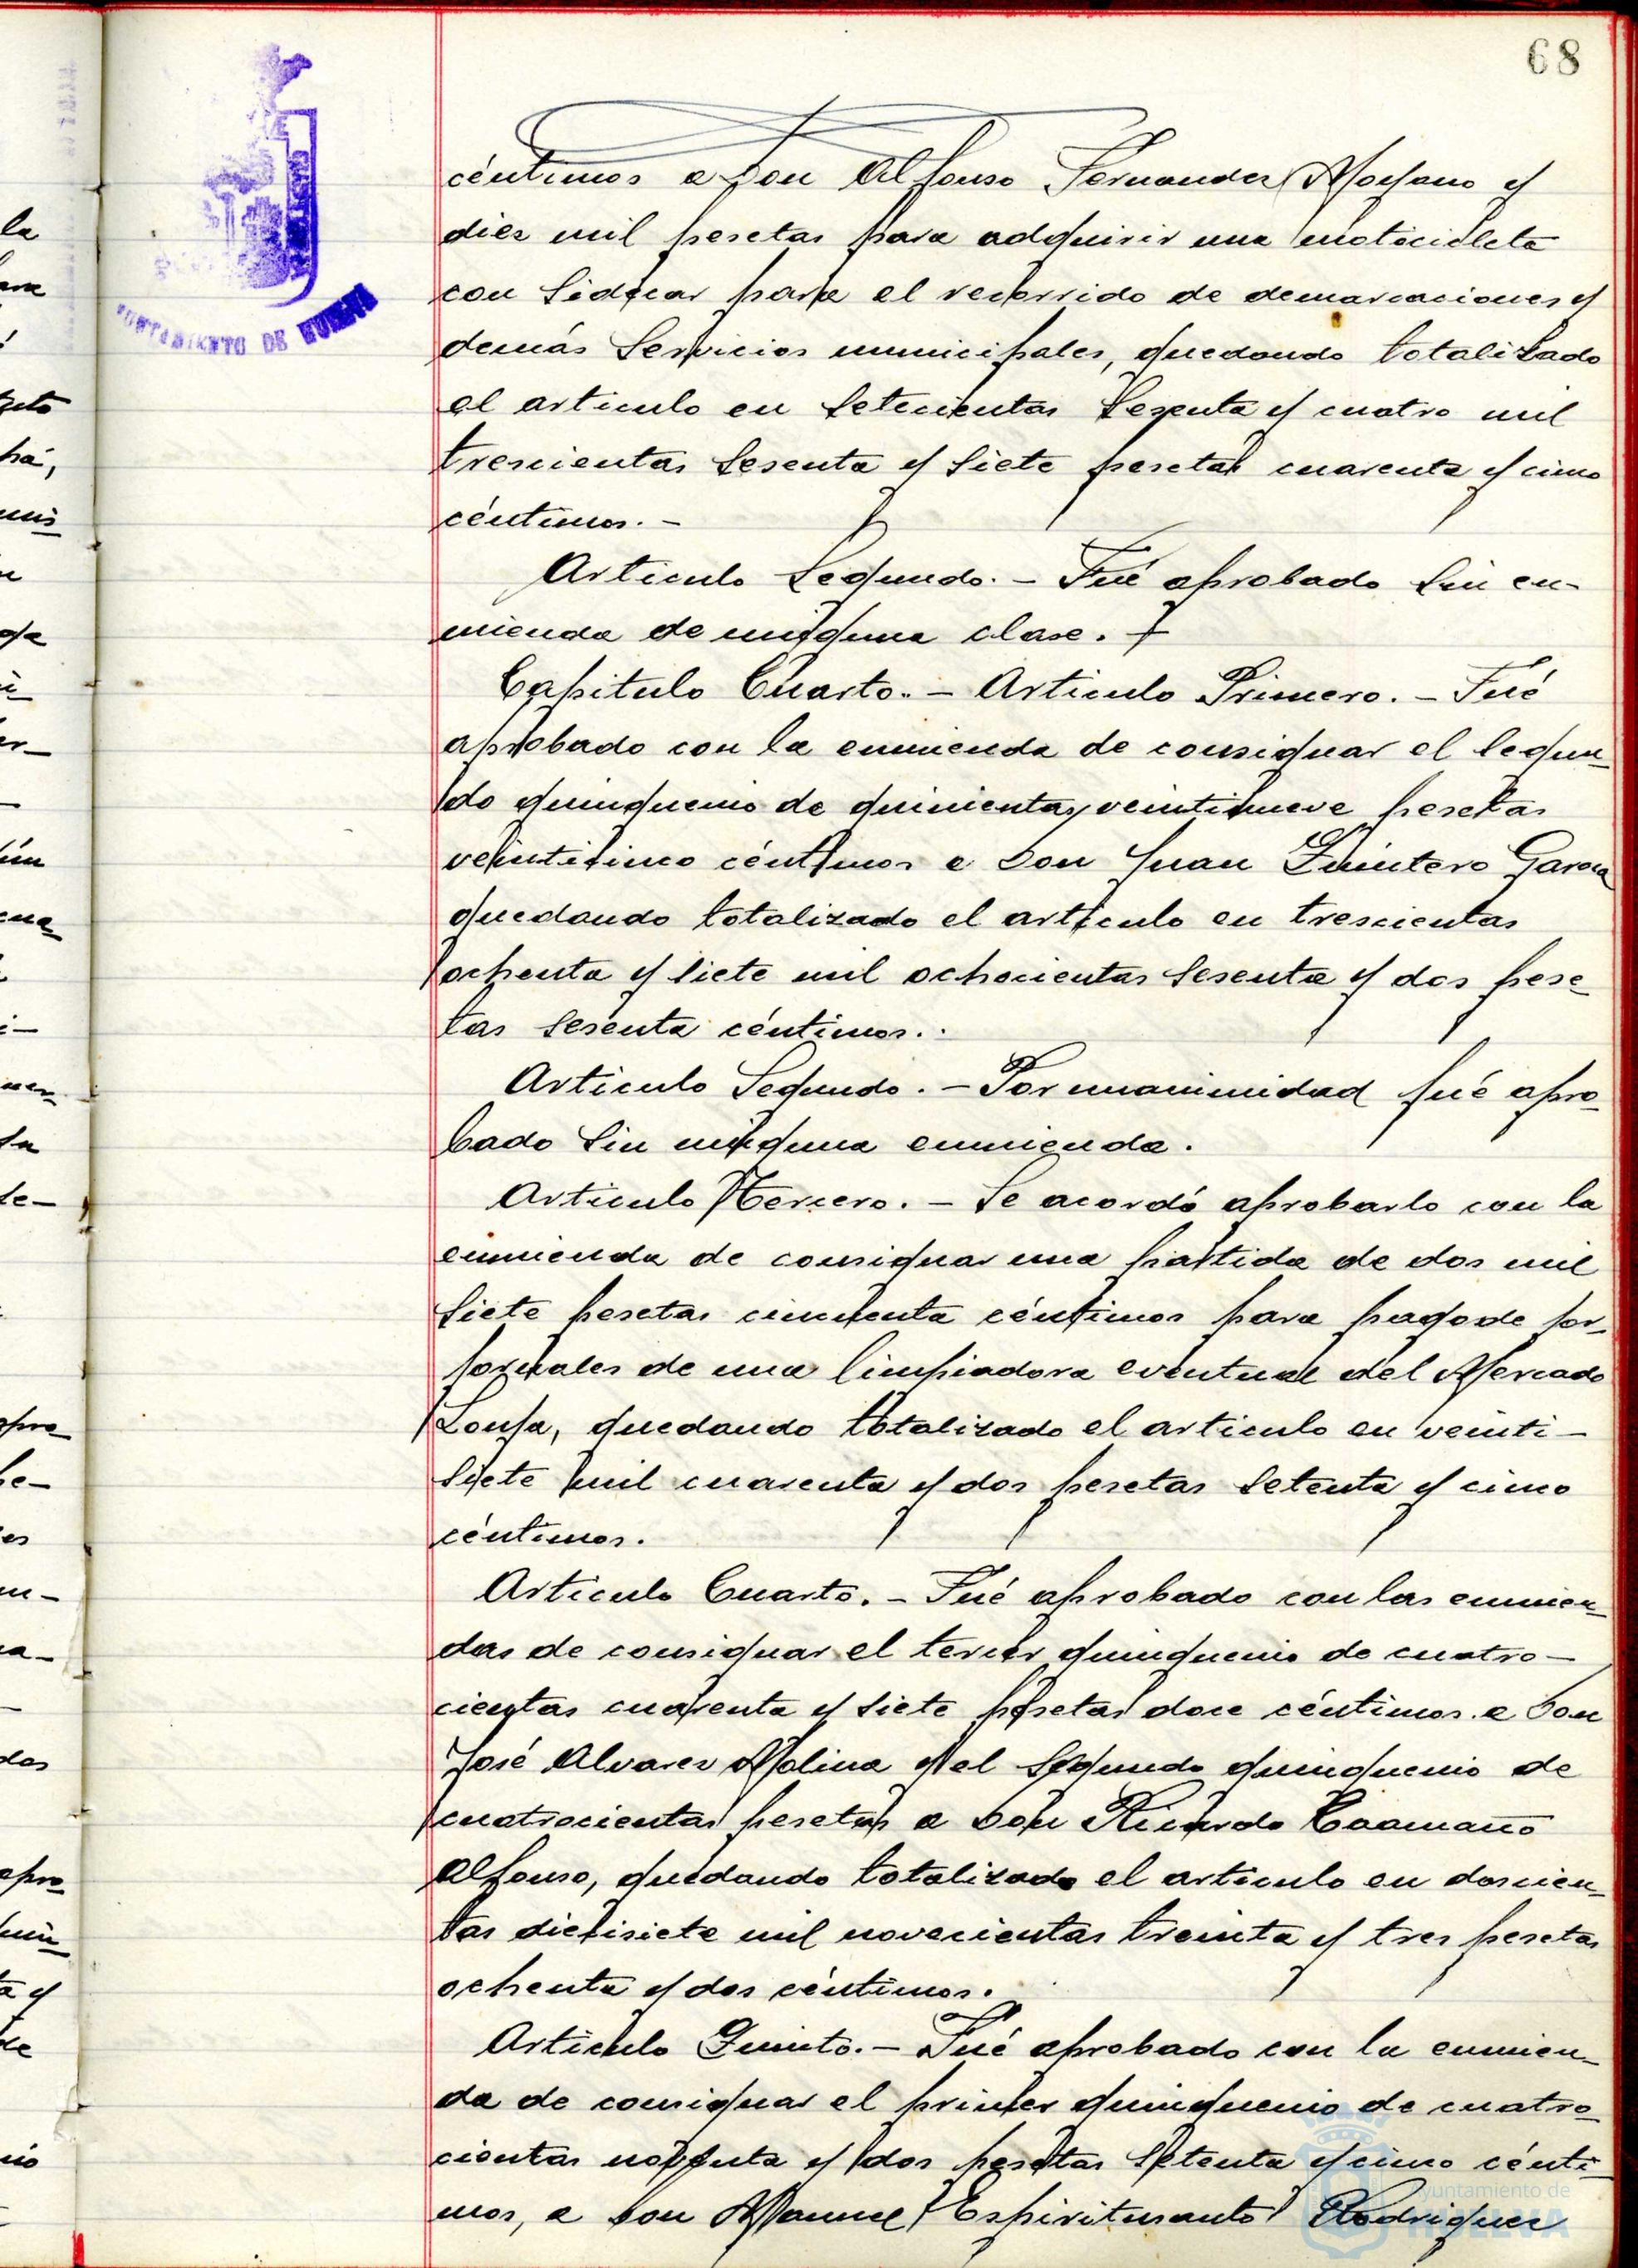 68
céntimos a Don Alfonso Fernandez Moyano y
diez mil pesetas para adquirir una motocicleta
con Sidecar para el recorrido de demarcaciones y
demás Servicios municipales, quedando totalizado
el articulo en Setecientas Sesenta y cuatro mil
trescientas Sesenta y Siete pesetas cuarenta y cinco
céntimos. -
Articulo Segundo. - Fué aprobado Sin en-
mienda de ninguna clase.
Capitulo Cuarto. - Articulo Primero. - Fué
aprobado con la enmienda de consignar el Segun-
do quinquenio de quinientas veintinueve pesetas
veinticinco céntimos a Don Juan Quintero Garcia
quedando totalizado el articulo en trescientas
ochenta y Siete mil ochocientas Sesenta y dos pese-
tas Sesenta céntimos.
Articulo Segundo. - Por unanimidad fué apro-
bado Sin ninguna enmienda.
Articulo Tercero. - Se acordó aprobarlo con la
enmienda de consignar una partida de dos mil
Siete pesetas cincuenta céntimos para pago de jor-
jornales de una limpiadora eventual del Mercado
Lonja, quedando totalizado el articulo en veinti-
Siete mil cuarenta y dos pesetas Setenta y cinco
céntimos.
Articulo Cuarto. - Fué aprobado con las enmien-
das de consignar el tercer quinquenio de cuatro-
cientas cuarenta y Siete pesetas doce céntimos a Don
José Alvarez Molina y el Segundo quinquenio de
cuatrocientas pesetas a Don Ricardo Caamaño
Alfonso, quedando totalizado el articulo en doscien-
tas diecisiete mil novecientas treinta y tres pesetas
ochenta y dos céntimos.
Articulo Quinto. - Fué aprobado con la enmien-
da de consignar el primer quinquenio de cuatro-
cientas noventa y dos pesetas Setenta y cinco cénti-
mos, a Don Manuel Espiritusanto Rodriguez
AYUNTAMIENTO DE HUELVA
Ayuntamiento de
HUELVA